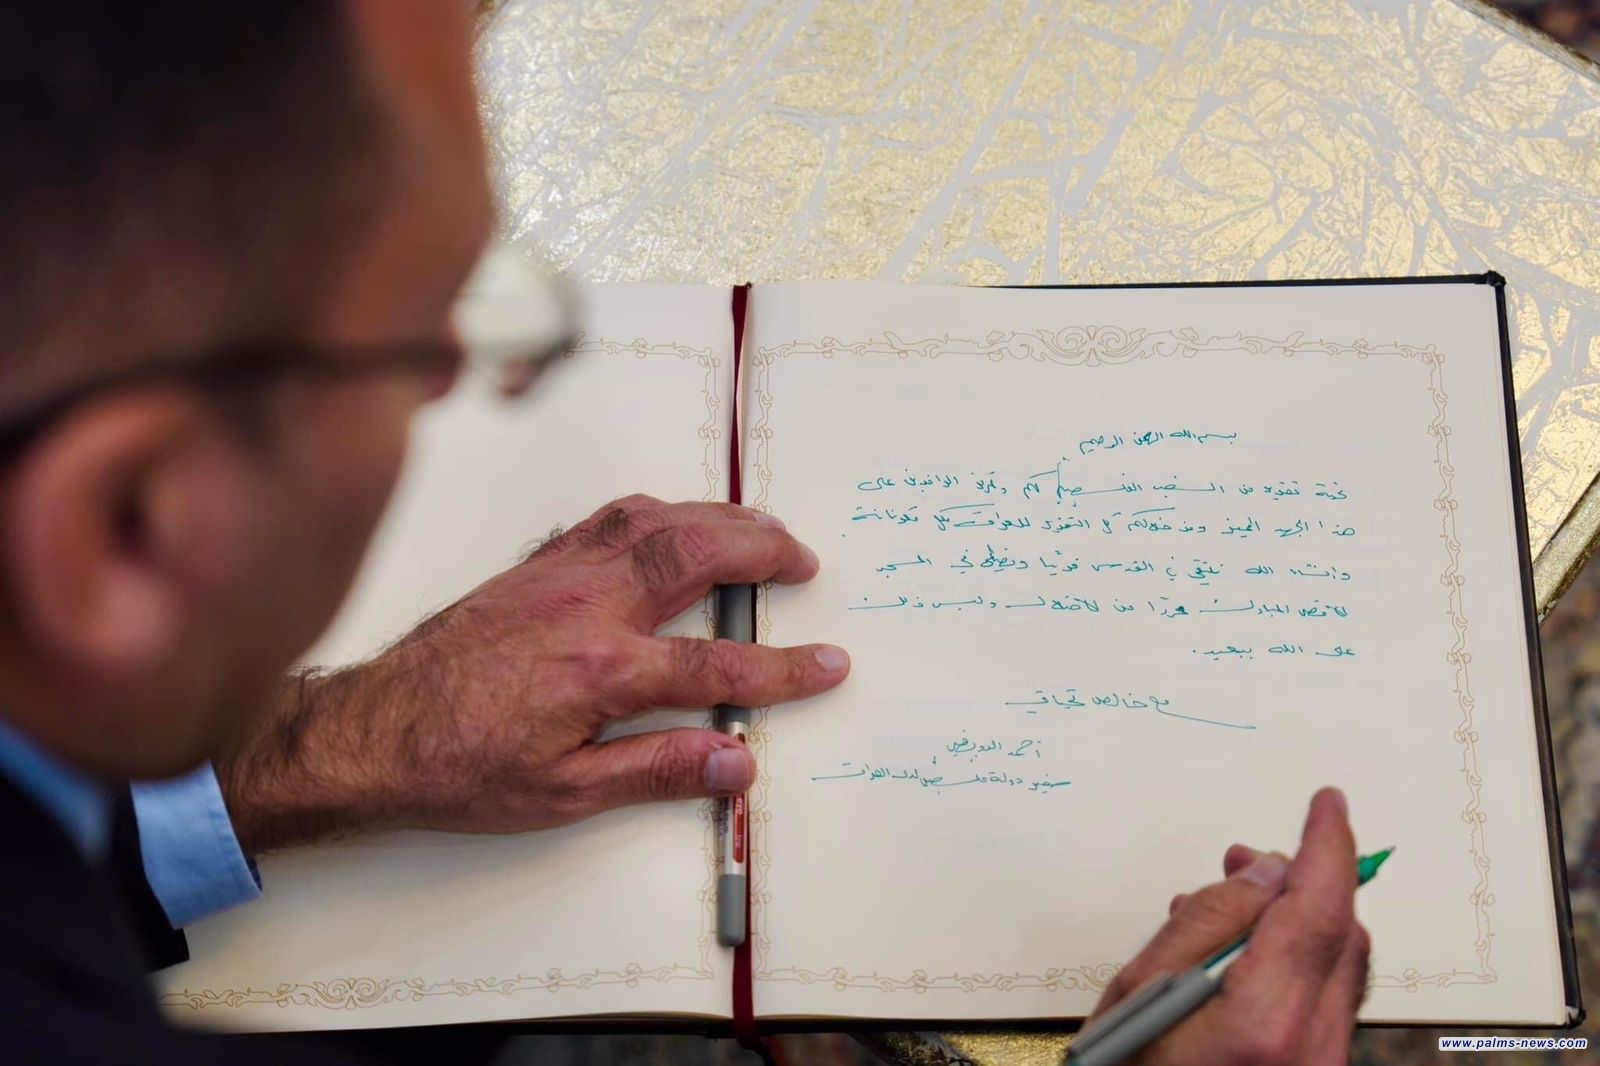 بسم الله الرحمن الرحيم
تحية تقدير من الشعب الفلسطيني لكم الوافدين على
هذا الجهد المميز ومن خلالكم كل التقدير للعراق بكل مكوناته.
وانشاء الله نلتقي في القدس قريبًا ونصلي في المسجد
الأقصى المبارك محررًا من الاحتلال وليس ذلك
على الله ببعيد.
مع خالص تحياتي
أحمد الرويضي
سفير دولة فلسطين لدى العراق
www.palms-news.com